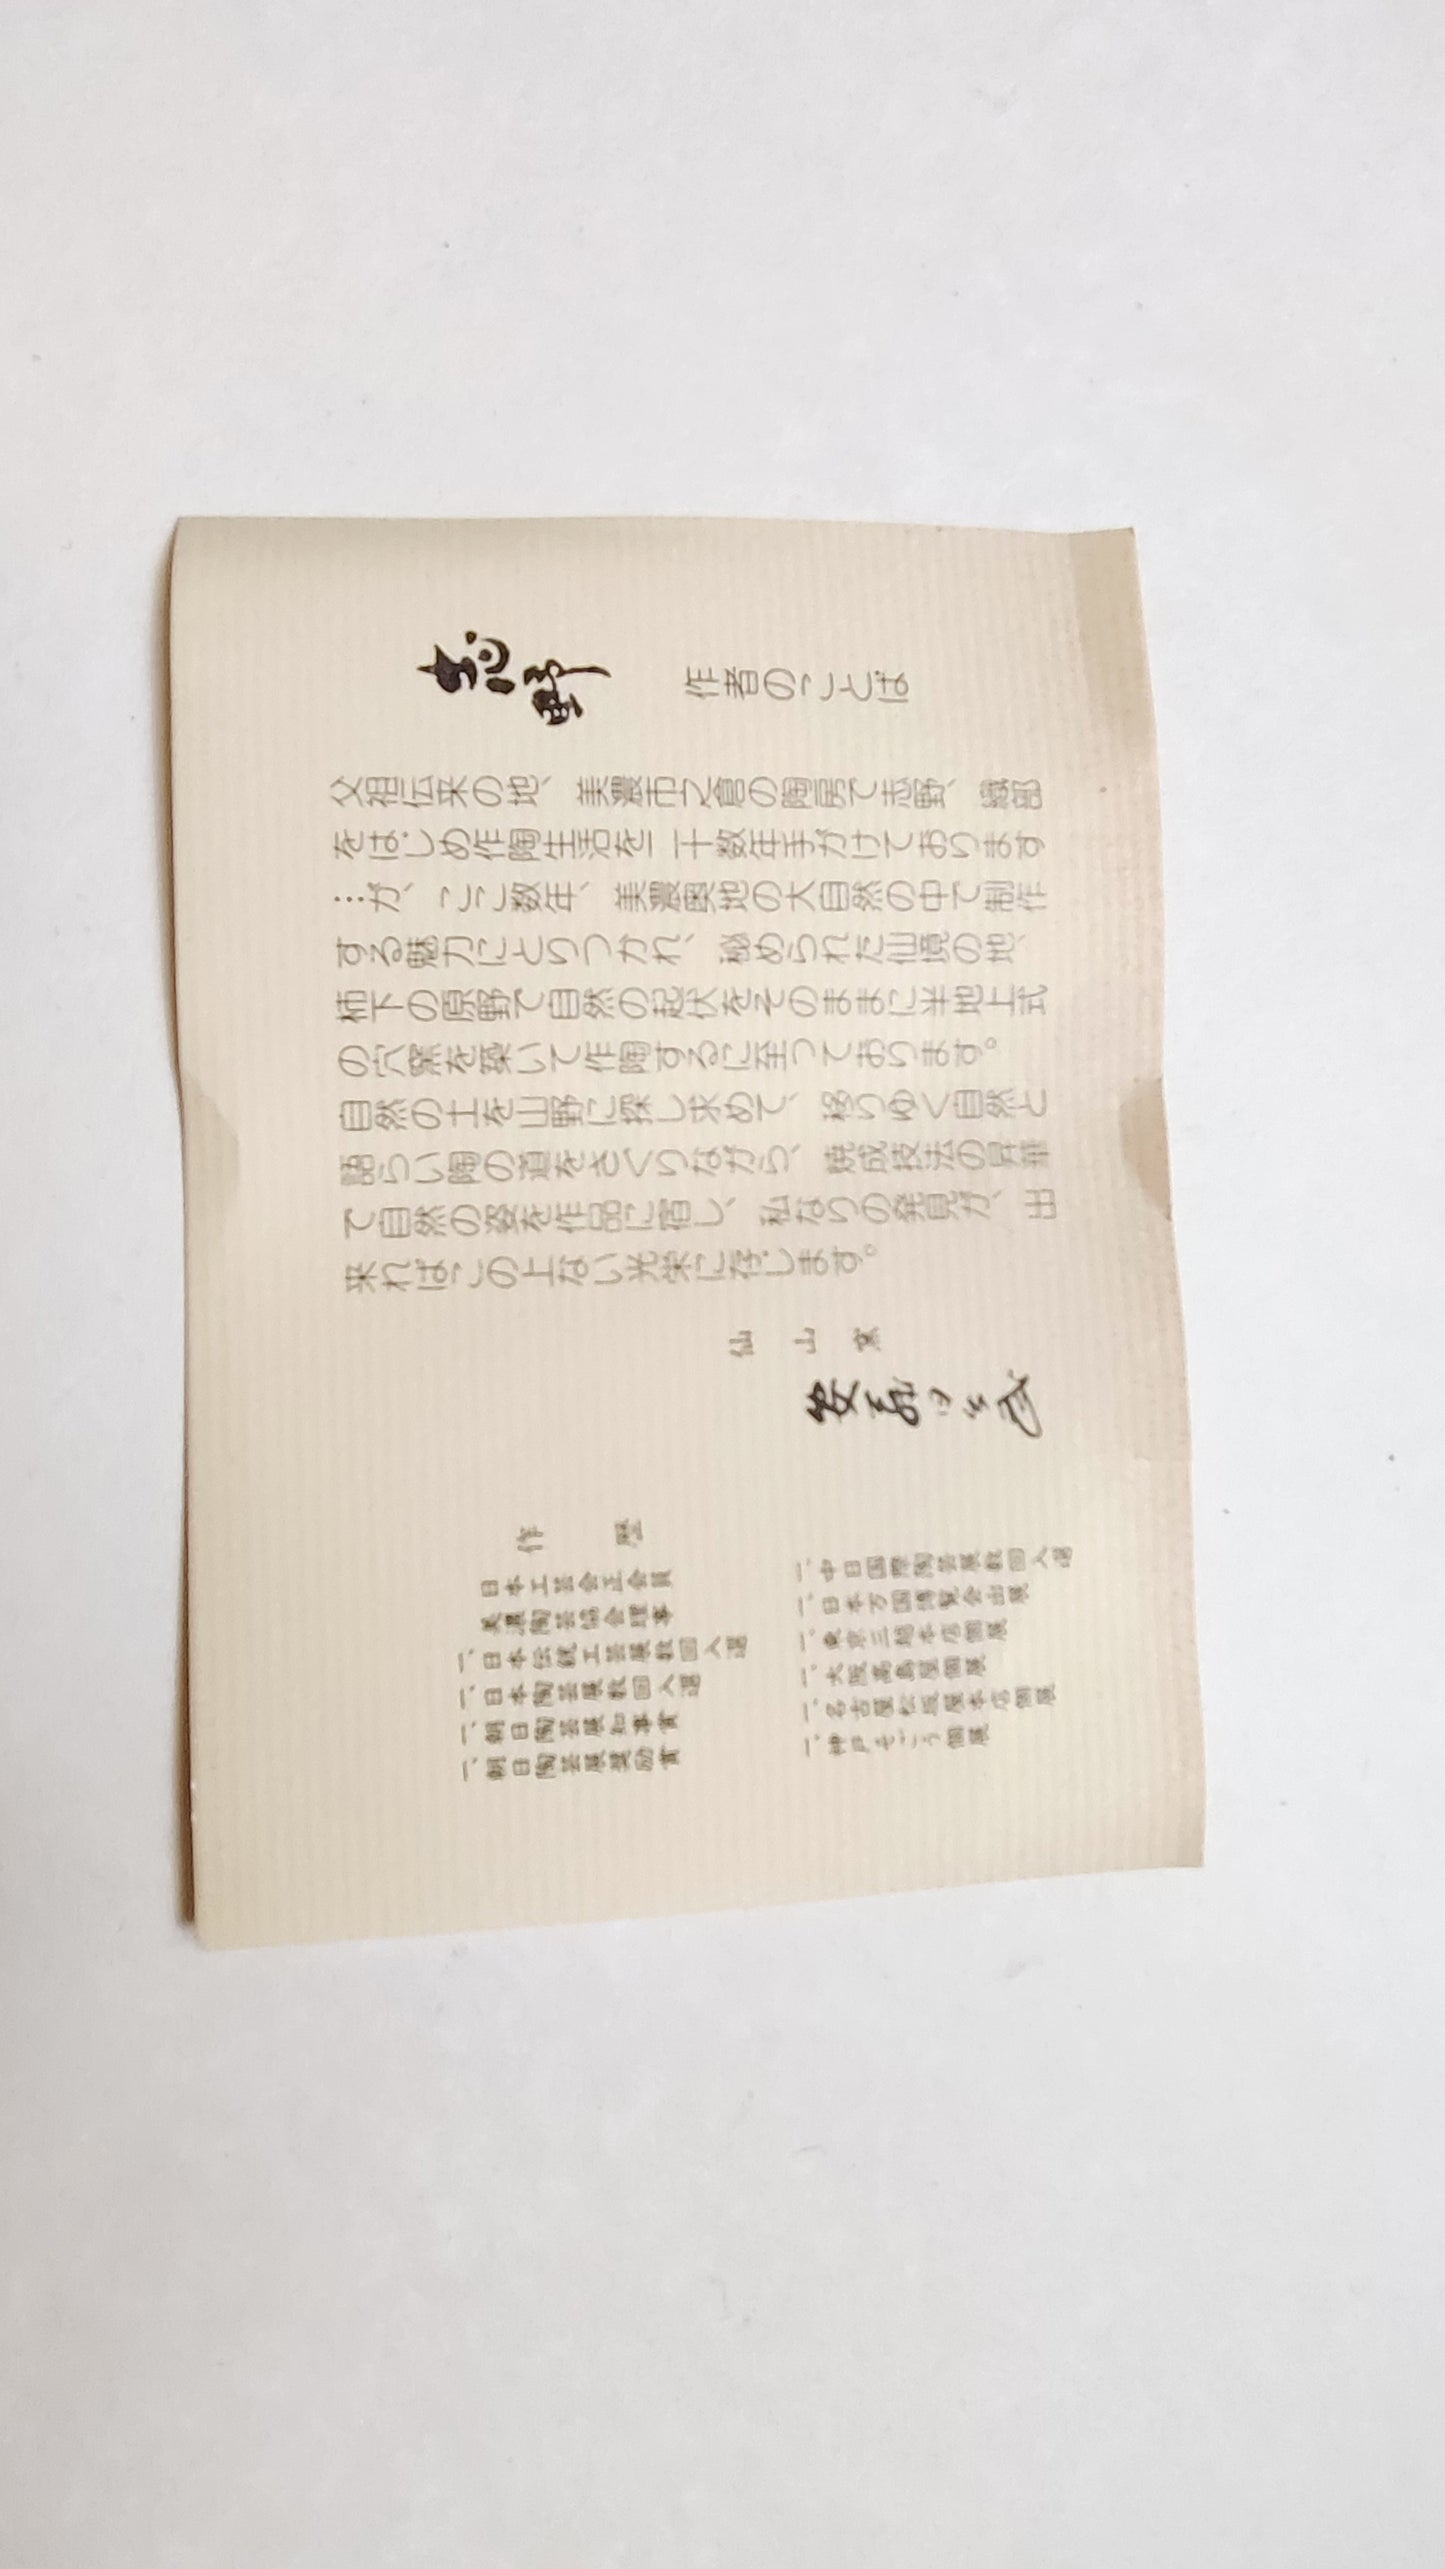 志野
作者のことば
父祖伝来の地、美濃市之倉の陶房で志野、織部
をはじめ作陶生活を二十数年手がけております
…が、ここ数年、美濃奥地の大自然の中で制作
する魅力にとりつかれ、秘められた仙境の地、
柿下の原野で自然の起伏をそのままに半地上式
の穴窯を築いて作陶するに至っております。
自然の土を山野に探し求めて、移りゆく自然と
語らい陶の道をさぐりながら、焼成技法の昇華
で自然の姿を作品に宿し、私なりの発見が、出
来ればこの上ない光栄に存じます。
仙山窯
安藤日出武
作歴
日本工芸会正会員
美濃陶芸協会理事
一、日本伝統工芸展数回入選
一、日本陶芸展数回入選
一、朝日陶芸展知事賞
一、朝日陶芸展奨励賞
一、中日国際陶芸展数回入選
一、日本万国博覧会出展
一、東京三越本店個展
一、大阪高島屋個展
一、名古屋松坂屋本店個展
一、神戸そごう個展